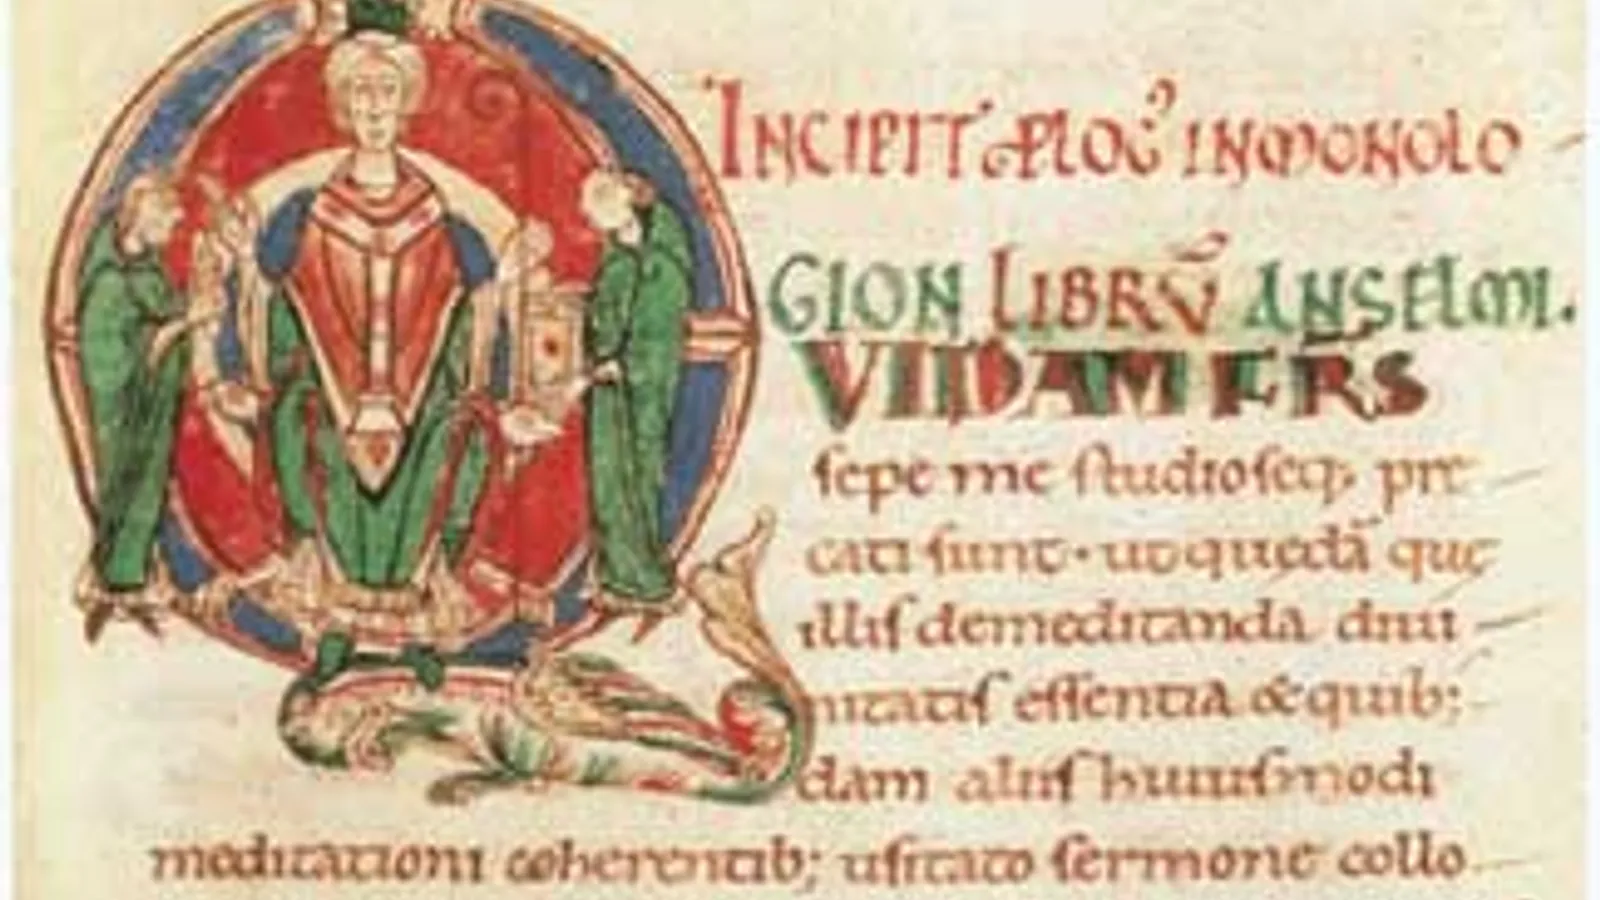 INCIPIT PLOG̃ IN MONOLO
GION LIBRŪ ANSELMI.
VIDAM FRS
sepe me studioseq; pre
cati sunt. ut quedā que
illis de meditanda diui
nitatis essentia & quib;
dam aliis huiusmodi
meditationi coherentib; usitato sermone collo